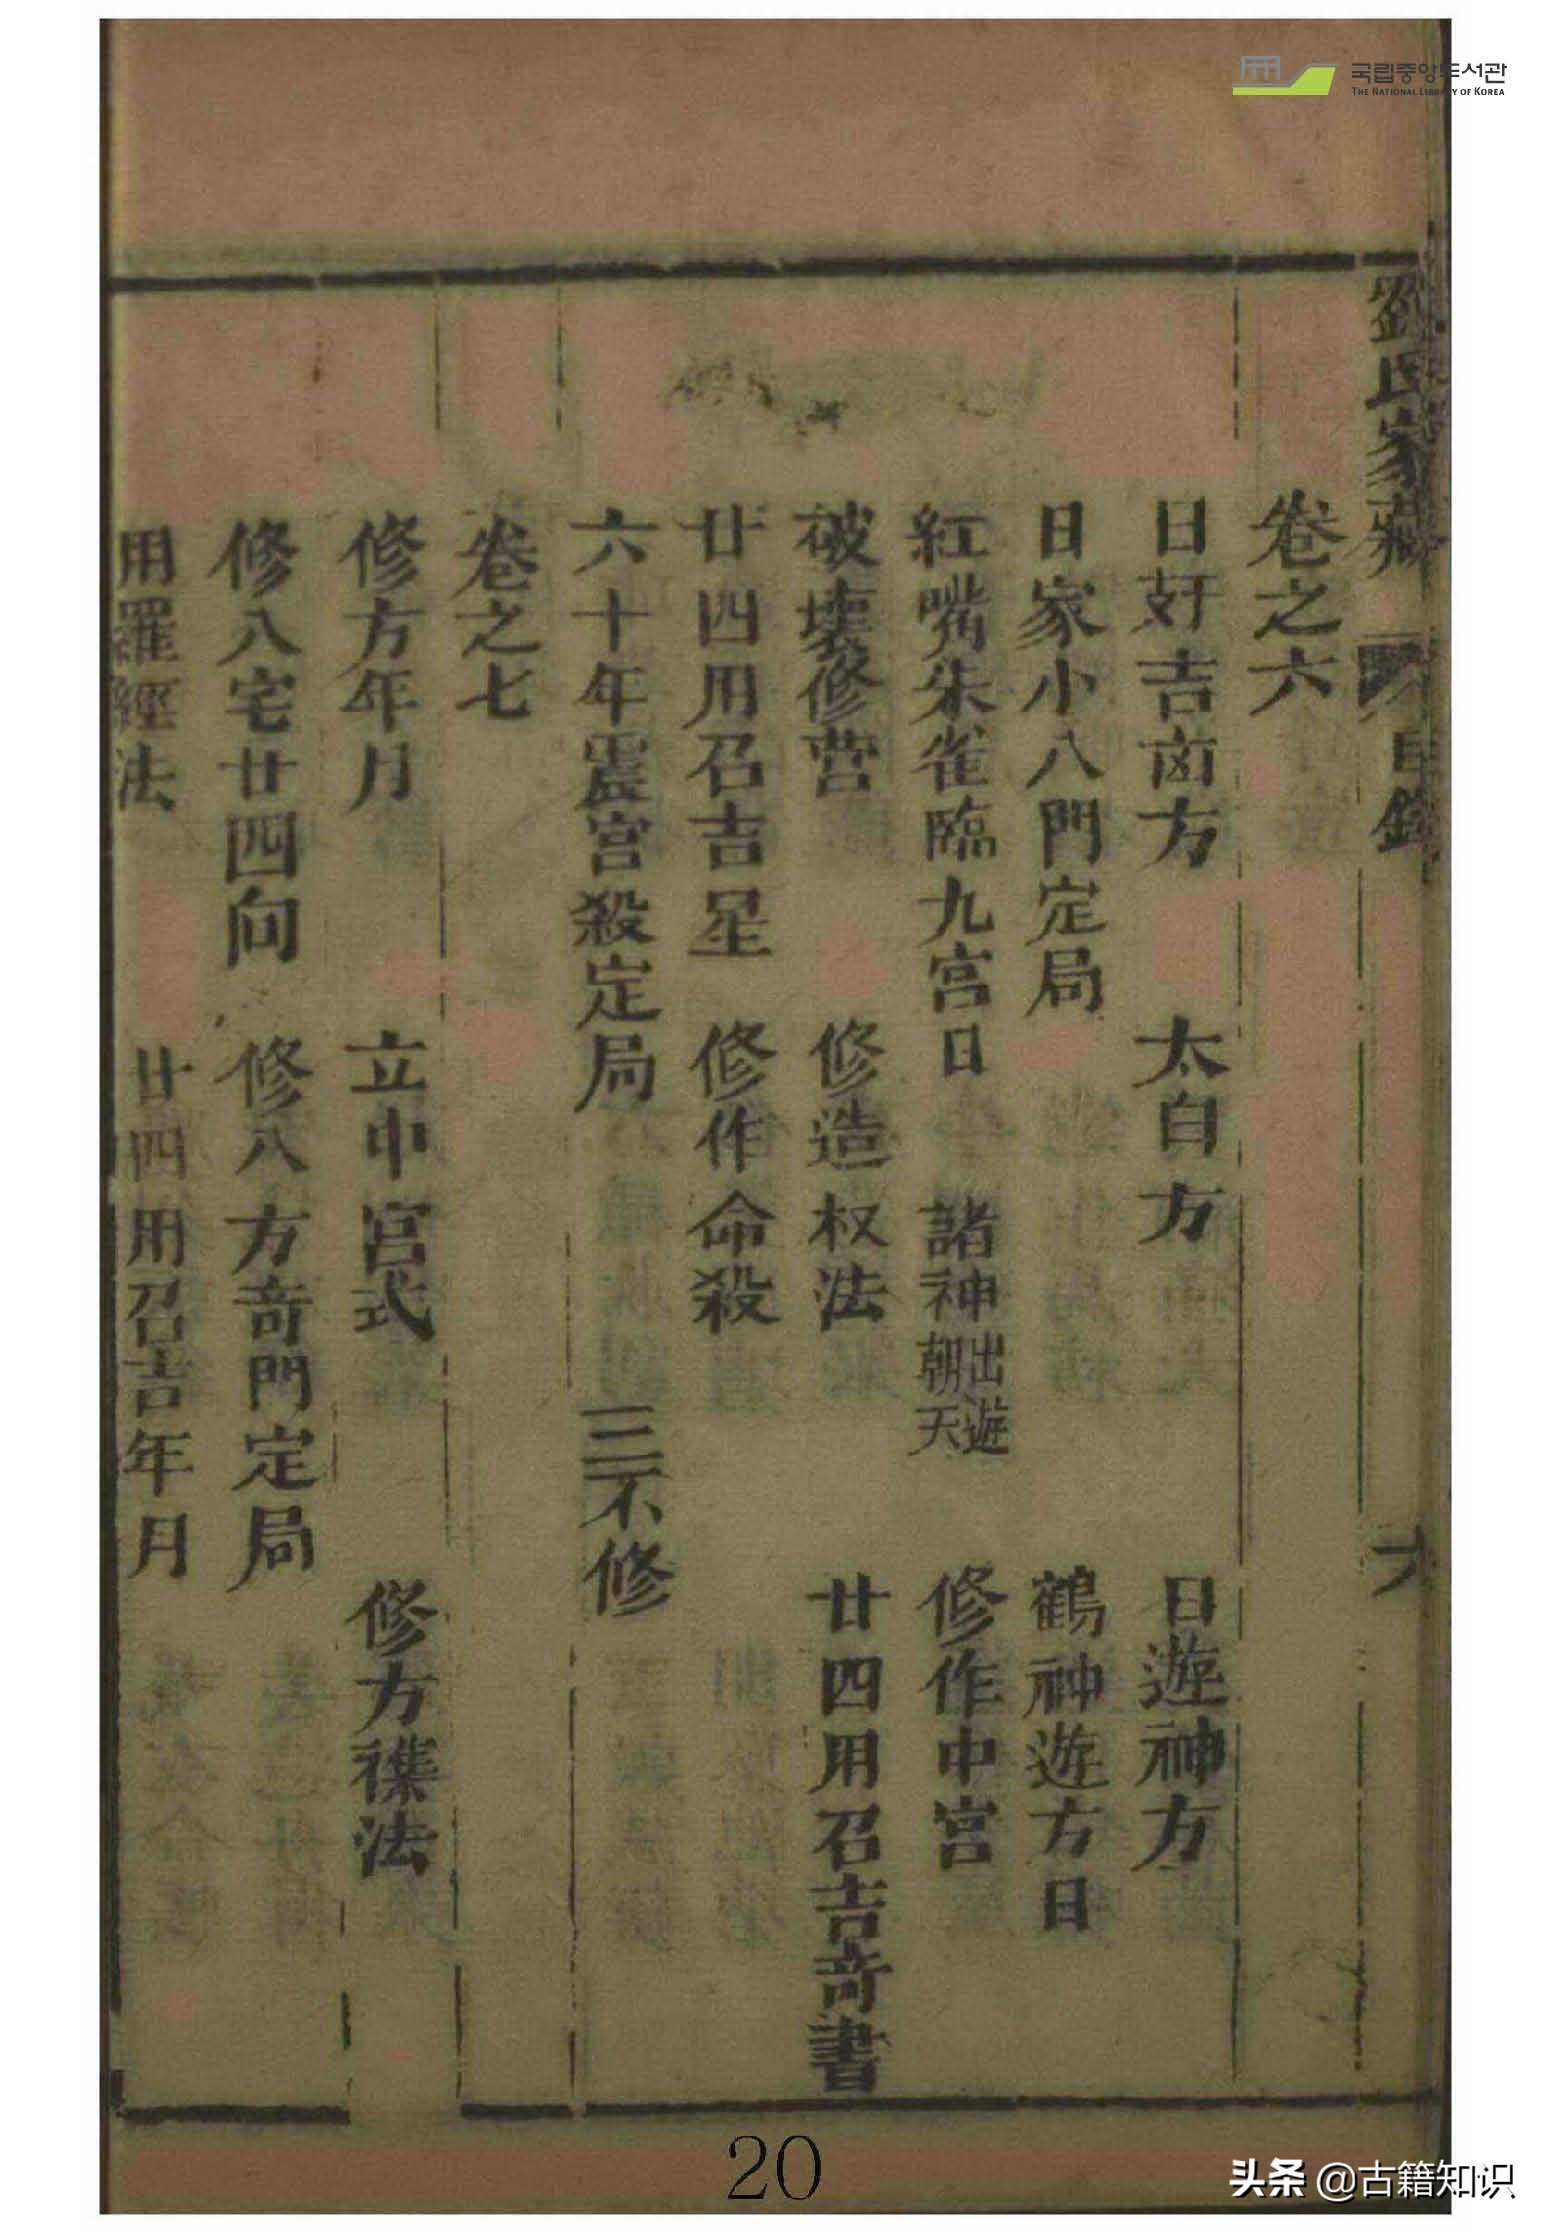 국립중앙도서관
THE NATIONAL LIBRARY OF KOREA
劉氏家藏 目錄 六
卷之六
日好吉凶方 太白方 日遊神方
日家小八門定局 鶴神遊方日
紅嘴朱雀臨九宮日 諸神出遊朝天 修作中宮
破壞修营 修造权法 廿四用召吉奇書
廿四用召吉星 修作命殺
六十年震宮殺定局 三不修
卷之七
修方年月 立中宮式 修方禳法
修八宅廿四向 修八方奇門定局
用羅經法 廿四用召吉年月
20
头条 @古籍知识